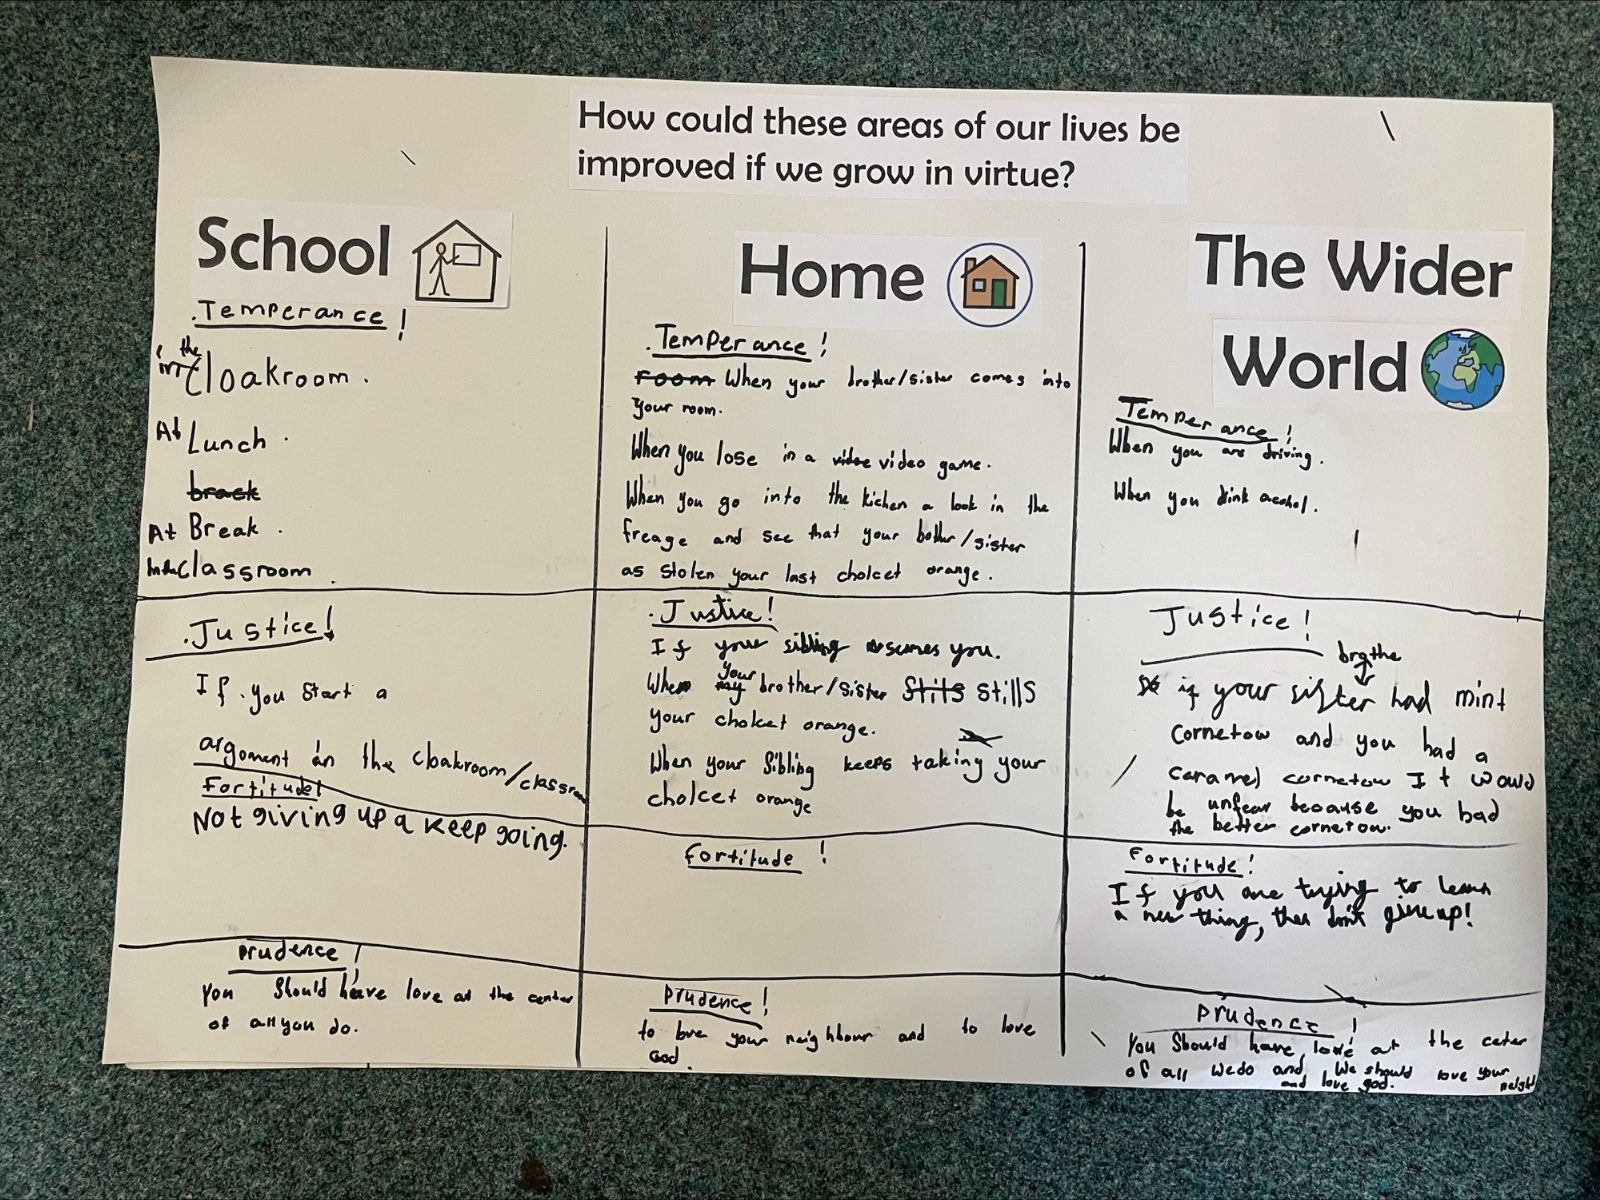 How could these areas of our lives be
improved if we grow in virtue?
School
.Temperance!
in the
Cloakroom.
At Lunch.
brack
At Break.
In the classroom.
.Justice!
If you start a
argoment in the cloakroom/classroom
Fortitude!
Not giving up a keep going.
Prudence!
You Should have love at the center
of all you do.
Home
.Temperance!
room When your brother/sister comes into
your room.
When you lose in a video video game.
When you go into the kichen a look in the
freage and see that your bother/sister
as stolen your last cholcet orange.
.Justice!
If your sibling you.
When my your brother/sister stits stills
your cholcet orange.
When your Sibling keeps taking your
cholcet orange
Fortitude!
Prudence!
to love your neighbour and to love
God.
The Wider
World
Temperance!
When you are driving.
When you drink acohol.
Justice!
brothe
if your sister had mint
cornetow and you had a
caramel cornetow It would
be unfear because you had
the better cornetow.
Fortitude!
If you are trying to learn
a new thing, then don't give up!
Prudence!
You Should have love at the center
of all we do and we should love your
and love god.